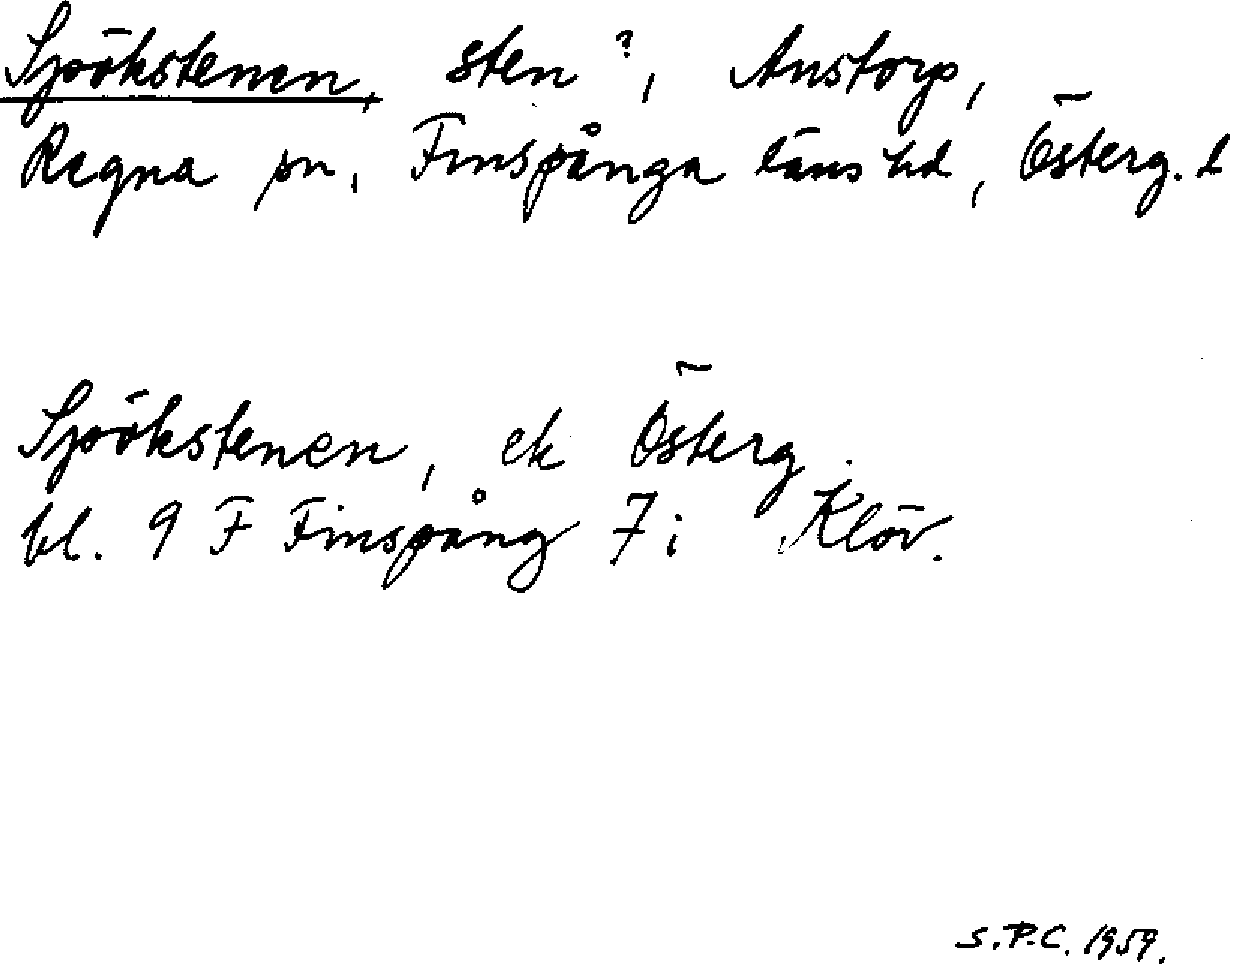 Spökstenen, sten?, Anstorp,
Regna sn, Finspånga läns hd, Österg. l
Spökstenen, ek Österg.
bl. 9 F Finspång 7 i Klöv.
S.P.C. 1959.